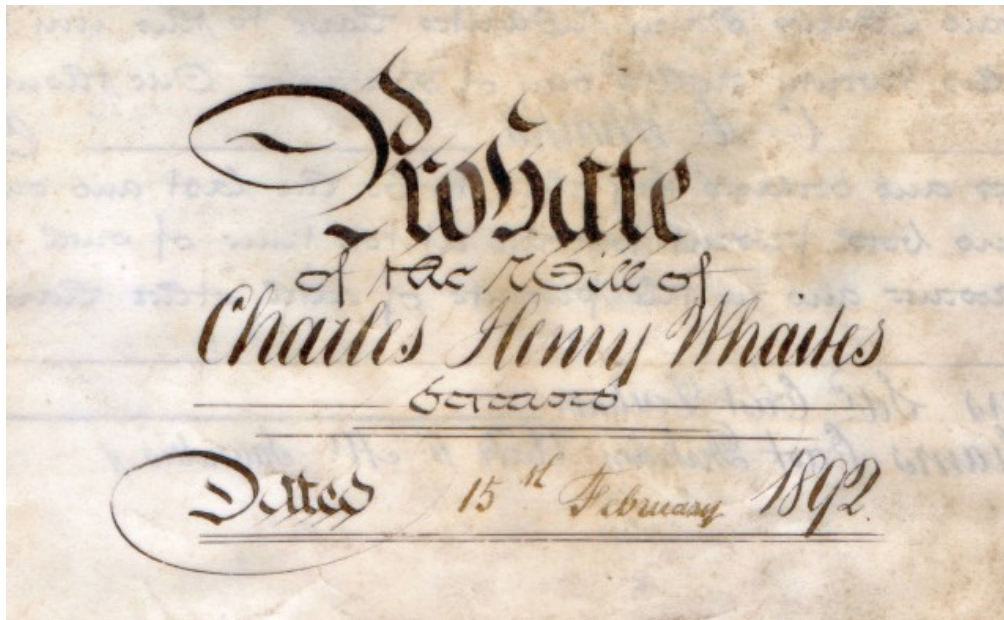 Probate
of the Will of
Charles Henry Whaites
Deceased
Dated 15th February 1892.